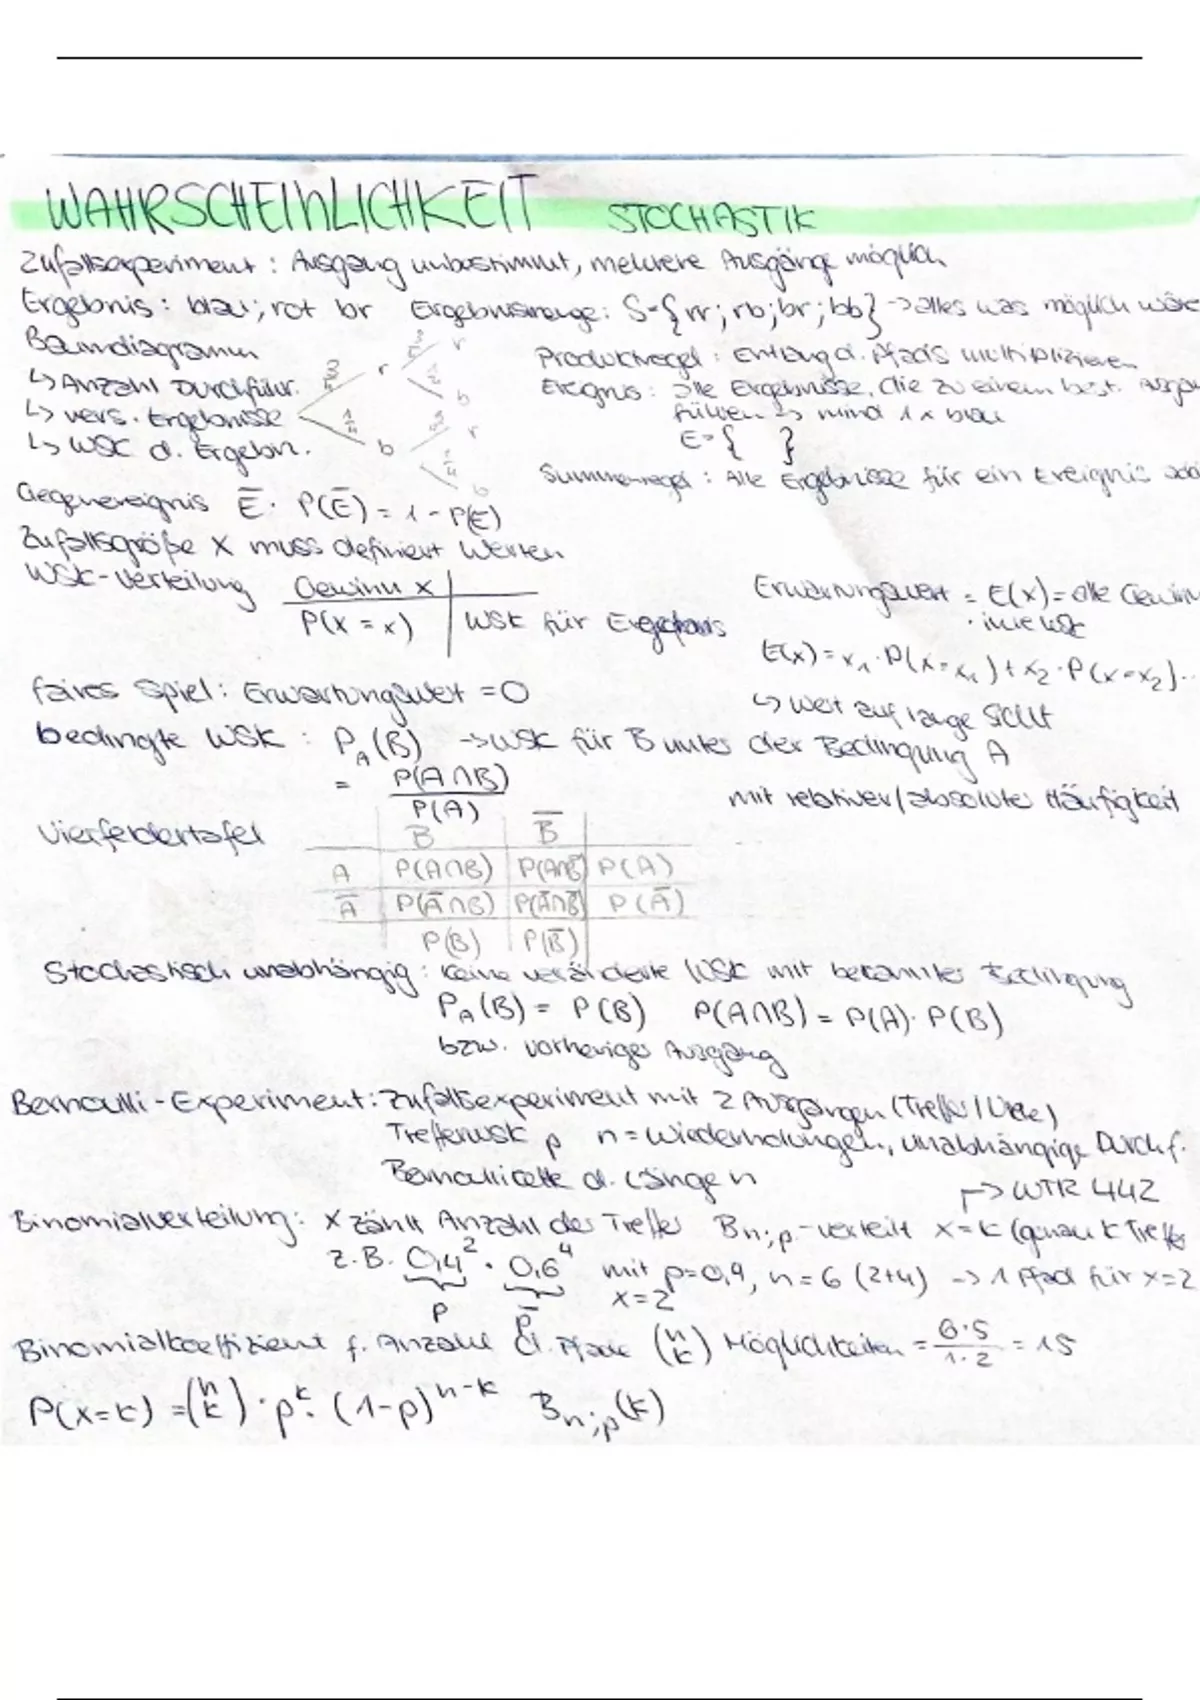 WAHRSCHEINLICHKEIT STOCHASTIK
Zufallsexperiment : Ausgang unbestimmt, mehrere Ausgänge möglich
Ergebnis : blau; rot br Ergebnismenge : S={rr; rb; br; bb} -> alles was möglich wäre
Baumdiagramm
↳ Anzahl Durchführ.
↳ vers. Ergebnisse
↳ WSK d. Ergebn.
r
b
r
b
r
b
1/4
1/4
Produktregel : entlang d. Pfads multiplizieren
Ereignis : alle Ergebnisse, die zu einem best.
führen -> mind 1 x blau
E={ }
Summenregel : Alle Ergebnisse für ein Ereignis
Gegenereignis E̅ · P(E̅) = 1 - P(E)
Zufallsgröße X muss definiert werden
WSK-Verteilung Gewinn x
P(X = x) WSK für Ergebnis
Erwartungswert = E(X) = alle Gewinn
· ihre WSK
E(X) = x₁ · P(X=x₁) + x₂ · P(X=x₂)...
↳ Wert auf lange Sicht
faires Spiel : Erwartungswert = 0
bedingte WSK : P_A(B) -> WSK für B unter der Bedingung A
= P(A∩B)/P(A)
mit relativer/absoluter Häufigkeit
Vierfeldertafel
B B̅
A P(A∩B) P(A∩B̅) P(A)
A̅ P(A̅∩B) P(A̅∩B̅) P(A̅)
P(B) P(B̅)
Stochastisch unabhängig : keine veränderte WSK mit bekannter Bedingung
P_A(B) = P(B) P(A∩B) = P(A) · P(B)
bzw. vorheriger Ausgang
Bernoulli-Experiment : Zufallsexperiment mit 2 Ausgängen (Treffer/Niete)
Trefferwsk p n = Wiederholungen, unabhängige Durchf.
Bernoullikette d. Länge n
-> WTR 442
Binomialverteilung : X zählt Anzahl der Treffer B_n;p-verteilt X=k (genau k Treffer
z.B. 0,4² · 0,6⁴ mit p=0,4, n=6 (2+4) -> 1 Pfad für X=2
X=2
p p̅
Binomialkoeffizient f. Anzahl d. Pfade (n k) Möglichkeiten = 6·5/1·2 = 15
P(X=k) = (n k) · p^k · (1-p)^n-k B_n;p(k)